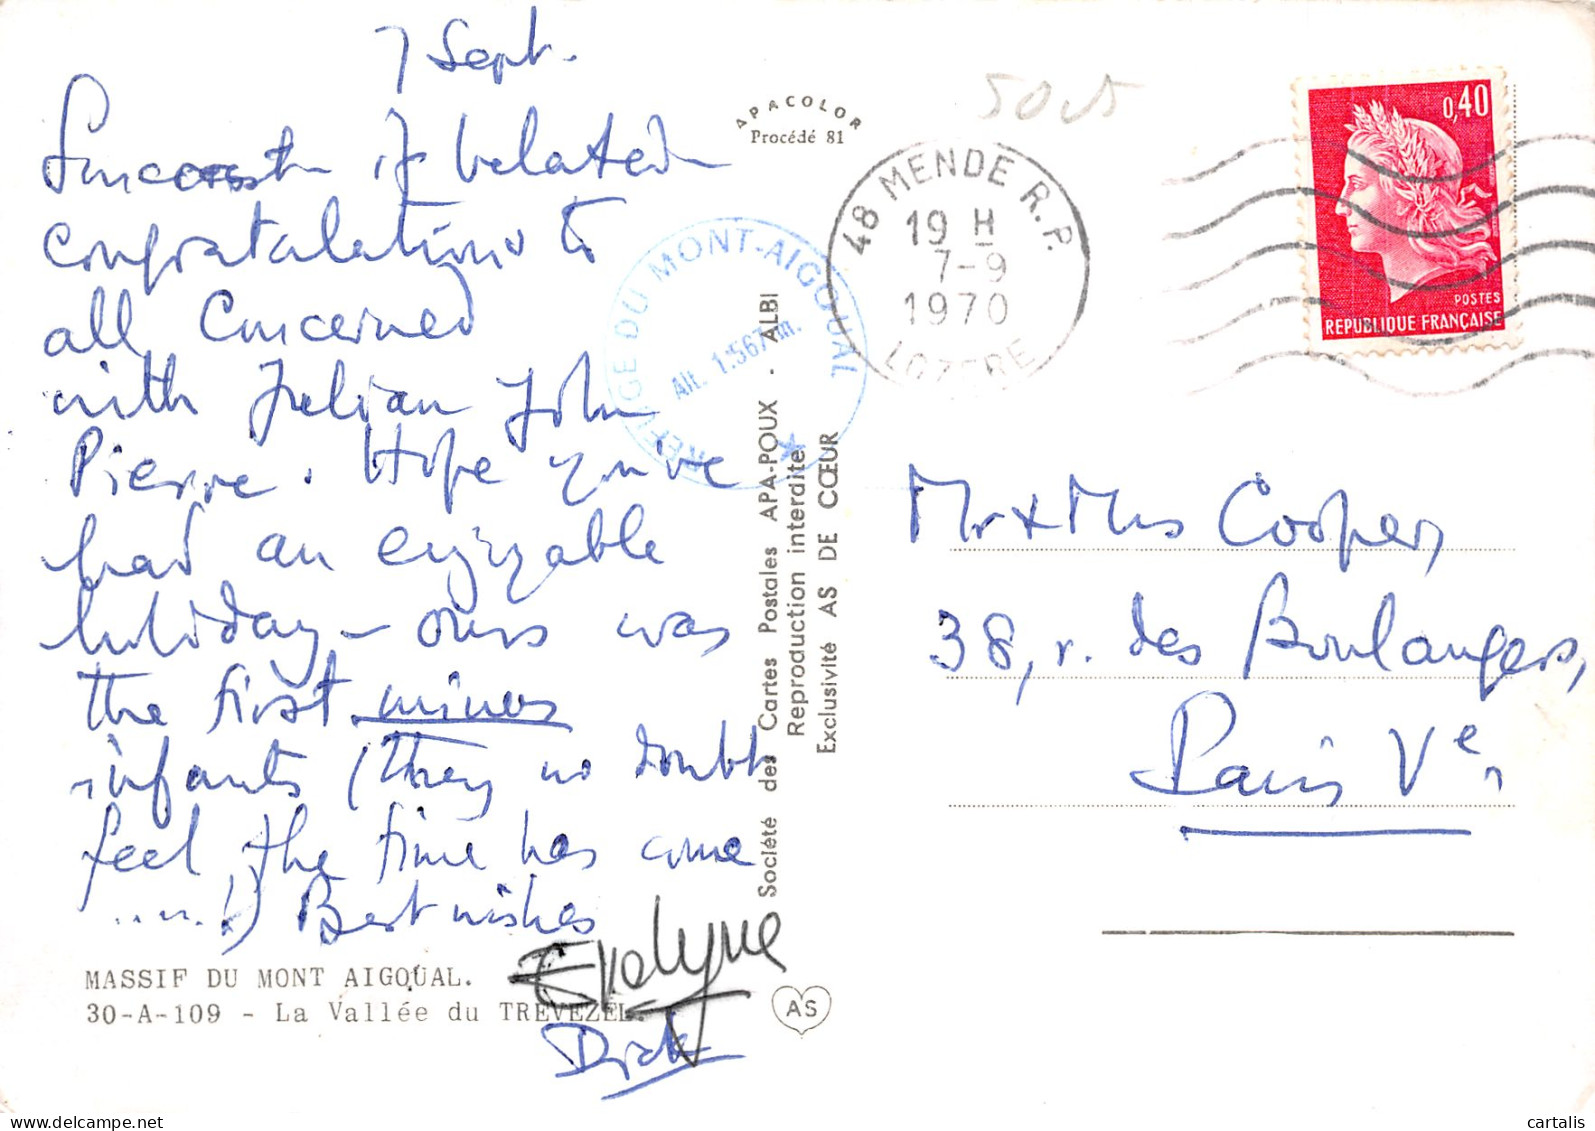 7 Sept.
Sincerest if belated
congratulations to
all concerned
with Julian John
Pierre. Hope you've
had an enjoyable
holiday - ours was
the first minus
infants (they no doubt
feel the time has come
.....!) Best wishes
Evelyne
Dick
MASSIF DU MONT AIGOUAL.
30-A-109 - La Vallée du TREVEZEL.
APACOLOR
Procédé 81
REFUGE DU MONT-AIGOUAL
Alt. 1.567 m.
Société des Cartes Postales APA-POUX - ALBI
Reproduction interdite
Exclusivité AS DE CŒUR
AS
48 MENDE R.P.
19 H
7-9
1970
LOZERE
0,40
POSTES
REPUBLIQUE FRANÇAISE
Mr & Mrs Cooper,
38, r. des Boulangers,
Paris Ve,
cartalis